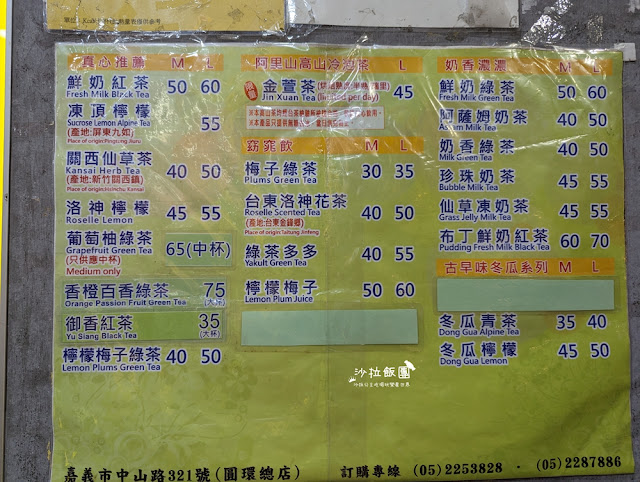 真心推薦 M L
鮮奶紅茶 50 60
Fresh Milk Black Tea
凍頂檸檬 55
Sucrose Lemon Alpine Tea
(產地:屏東九如)
Place of origin:Pingtung Jiuru
關西仙草茶 40 50
Kansai Herb Tea
(產地:新竹關西鎮)
Place of origin:Hsinchu Kansai
洛神檸檬 45 55
Roselle Lemon
葡萄柚綠茶 65(中杯)
Grapefruit Green Tea
(只供應中杯)
Medium only
香橙百香綠茶 75
Orange Passion Fruit Green Tea (大杯)
御香紅茶 35
Yu Siang Black Tea (大杯)
檸檬梅子綠茶 40 50
Lemon Plums Green Tea
阿里山高山冷泡茶 L
金萱茶 45
Jin Xuan Tea (limited per day)
窈窕飲
梅子綠茶 30 35
Plums Green Tea
台東洛神花茶 40 50
Roselle Scented Tea
(產地:台東金鋒鄉)
Place of origin:Taitung Jinfeng
綠茶多多 40 55
Yakult Green Tea
檸檬梅子 50 60
Lemon Plum Juice
奶香濃濃 M L
鮮奶綠茶 50 60
Fresh Milk Green Tea
阿薩姆奶茶 40 50
Assam Milk Tea
奶香綠茶 40 50
Milk Green Tea
珍珠奶茶 45 55
Bubble Milk Tea
仙草凍奶茶 45 55
Grass Jelly Milk Tea
布丁鮮奶紅茶 60 70
Pudding Fresh Milk Black Tea
古早味冬瓜系列 M L
冬瓜青茶 35 40
Dong Gua Alpine Tea
冬瓜檸檬 45 50
Dong Gua Lemon
沙拉飯團
嘉義市中山路321號(圓環總店) 訂購專線 (05)2253828 · (05)2287886